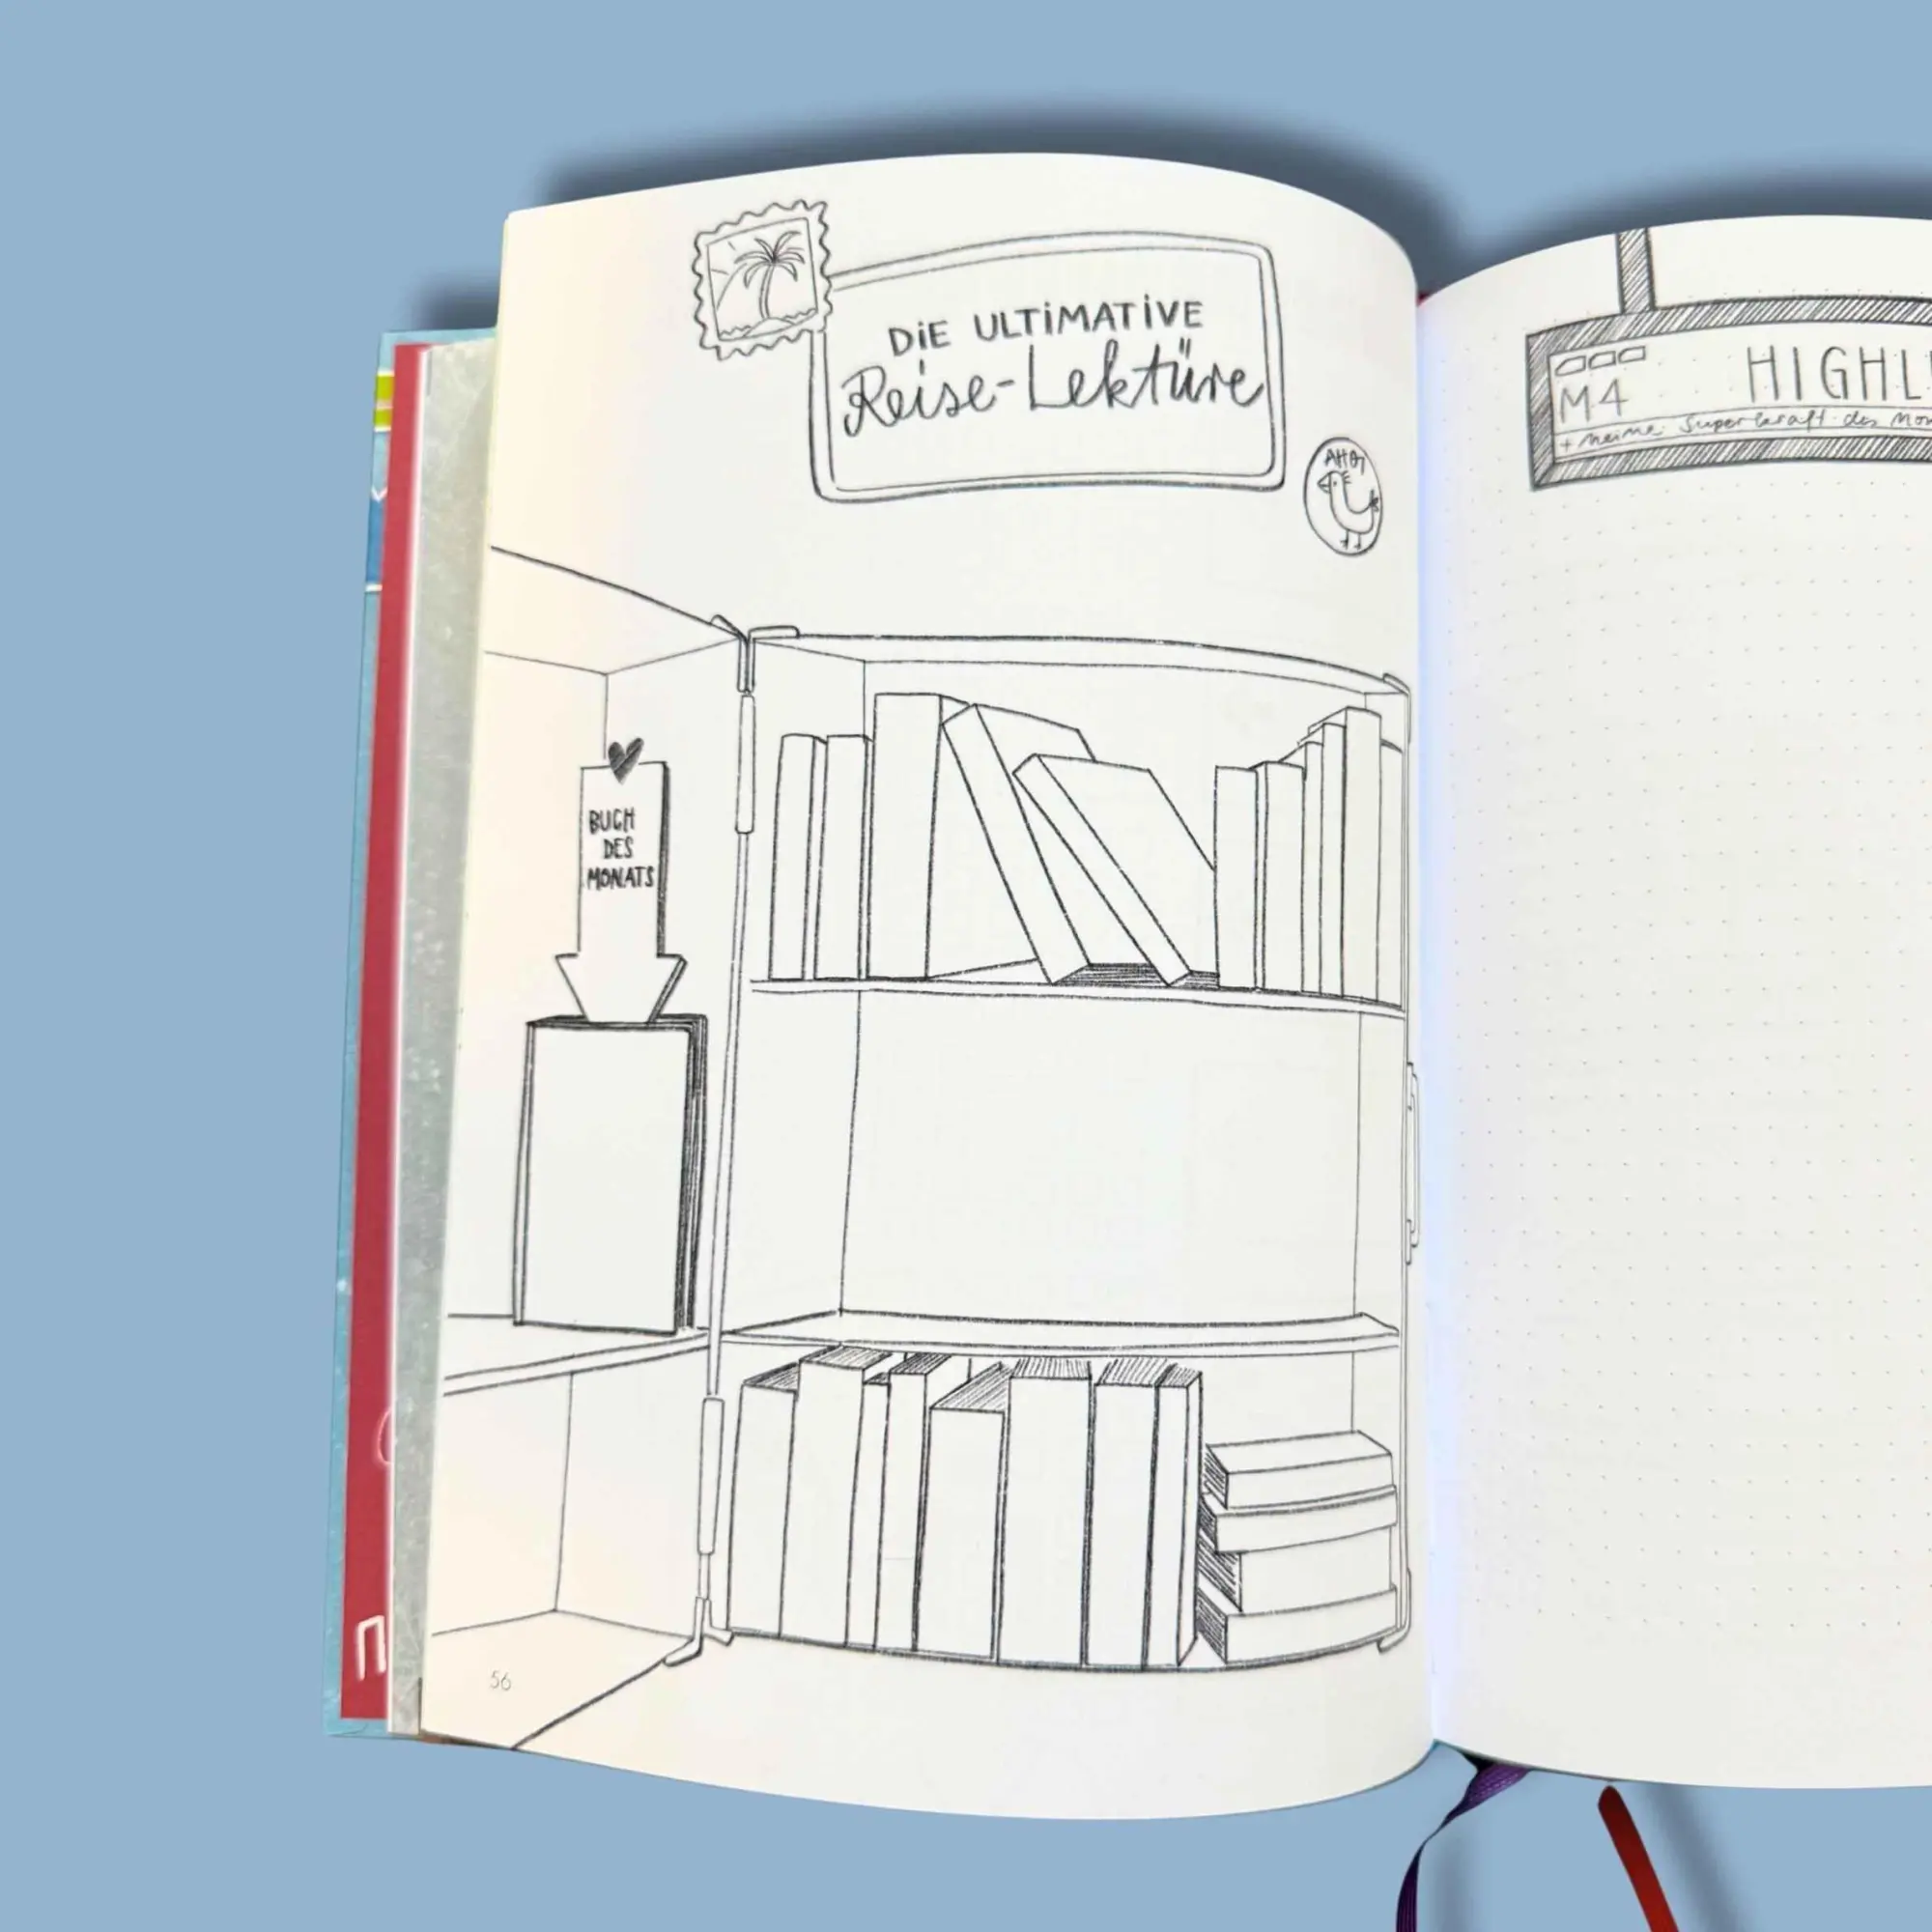 DIE ULTIMATIVE
Reise-Lektüre
AHOI
BUCH
DES
MONATS
56
M4
HIGHL
+ meine Superkraft des Mon